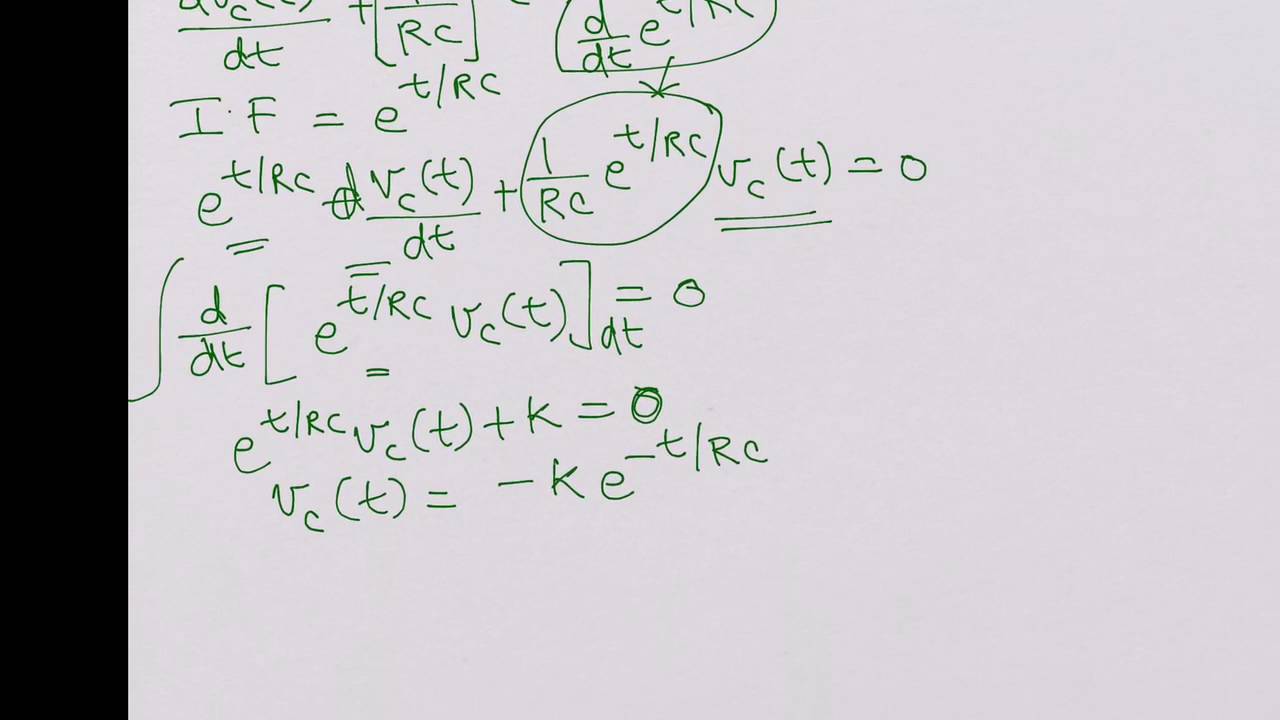 dv_c(t)/dt + [1/RC] d/dt e^{t/RC}
I.F = e^{t/RC}
e^{t/RC} dv_c(t)/dt + 1/RC e^{t/RC} v_c(t) = 0
∫ d/dt [e^{t/RC} v_c(t)] dt = 0
e^{t/RC} v_c(t) + K = 0
v_c(t) = -K e^{-t/RC}